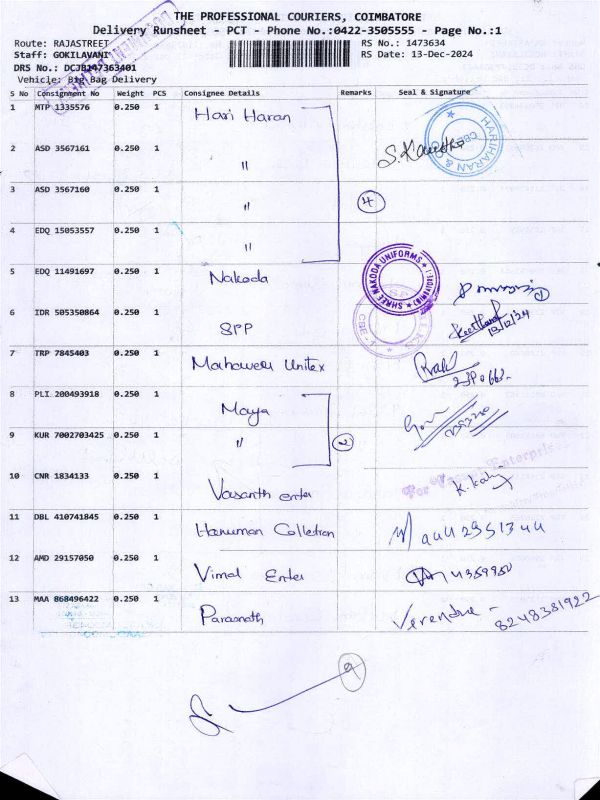 THE PROFESSIONAL COURIERS, COIMBATORE
Delivery Runsheet - PCT - Phone No.:0422-3505555 - Page No.:1
Route: RAJASTREET RS No.: 1473634
Staff: GOKILAVANI RS Date: 13-Dec-2024
DRS No.: DCJB147363401
Vehicle: Big Bag Delivery
S No Consignment No Weight PCS Consignee Details Remarks Seal & Signature
1 MTP 1335576 0.250 1 Hari Haran HARIHARAN &
2 ASD 3567161 0.250 1 "
3 ASD 3567160 0.250 1 " 4
4 EDQ 15053557 0.250 1 "
5 EDQ 11491697 0.250 1 Nakoda SHREE NAKODA UNIFORMS
6 IDR 505350864 0.250 1 SPP 13/12/24
7 TRP 7845403 0.250 1 Mahaweer Unitex
8 PLI 200493918 0.250 1 Maya
9 KUR 7002703425 0.250 1 " 2
10 CNR 1834133 0.250 1 Vasanth enter For Vasanth Enterpris
11 DBL 410741845 0.250 1 Hanuman Colletion
12 AMD 29157050 0.250 1 Vimal Enter
13 MAA 868496422 0.250 1 Parasnath 8248381922
9